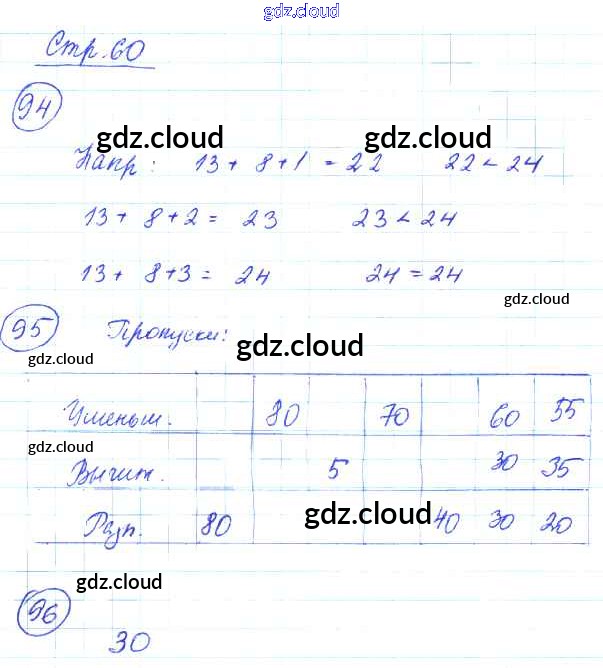 gdz.cloud
Стр. 60
94
gdz.cloud gdz.cloud
Напр: 13 + 8 + 1 = 22 22 < 24
13 + 8 + 2 = 23 23 < 24
13 + 8 + 3 = 24 24 = 24
gdz.cloud
95 Пропуски:
gdz.cloud
gdz.cloud
Уменьш. 80 70 60 55
gdz.cloud
Вычит. 5 30 35
gdz.cloud
Разн. 80 40 30 20
gdz.cloud
96
30
gdz.cloud